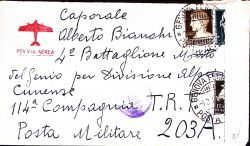 Caporale
PER VIA AEREA
Alberto Bianchi
4º Battaglione Misto
del Genio per Divisione Alp.
Cuneense
114ª Compagnia T. R. T.
Posta Militare 203A.